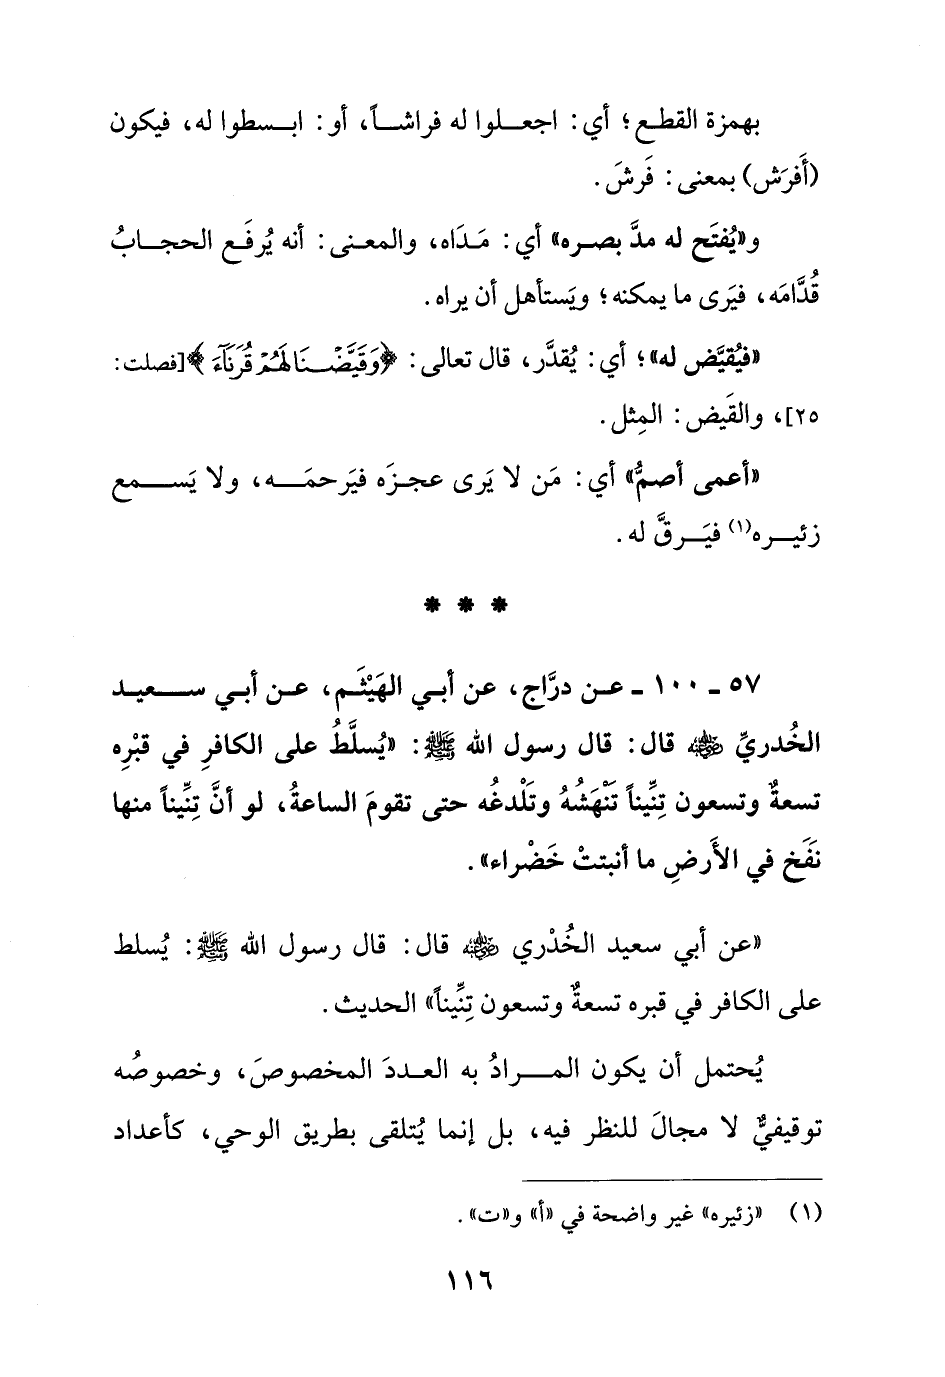 بهمزة القطع؛ أي: اجعلوا له فراشاً، أو: ابسطوا له، فيكون
(أَفرَش) بمعنى: فَرشَ.
و«يُفتَح له مدَّ بصره» أي: مَدَاه، والمعنى: أنه يُرفَع الحجابُ
قُدَّامَه، فيَرى ما يمكنه؛ ويَستأهل أن يراه.
«فيُقيَّض له»؛ أي: يُقدَّر، قال تعالى: ﴿وَقَيَّضْنَا لَهُمْ قُرَنَآءَ﴾[فصلت:
٢٥]، والقَيض: المِثل.
«أعمى أصمُّ» أي: مَن لا يَرى عجزَه فيَرحمَه، ولا يَسمع
زئيره(١) فيَرقَّ له.
* * *
٥٧ - ١٠٠ - عن درَّاج، عن أبي الهَيْثَم، عن أبي سعيد
الخُدريِّ ﵁ قال: قال رسول الله ﷺ: «يُسلَّطُ على الكافرِ في قبْرِه
تسعةٌ وتسعون تِنِّيناً تَنْهَشُهُ وتَلْدغُه حتى تقومَ الساعةُ، لو أنَّ تِنِّيناً منها
نَفَخ في الأَرضِ ما أنبتتْ خَضْراء».
«عن أبي سعيد الخُدْري ﵁ قال: قال رسول الله ﷺ: يُسلط
على الكافر في قبره تسعةٌ وتسعون تِنِّيناً» الحديث.
يُحتمل أن يكون المرادُ به العددَ المخصوصَ، وخصوصُه
توقيفيٌّ لا مجالَ للنظر فيه، بل إنما يُتلقى بطريق الوحي، كأعداد
(١) «زئيره» غير واضحة في «أ» و«ت».
١١٦